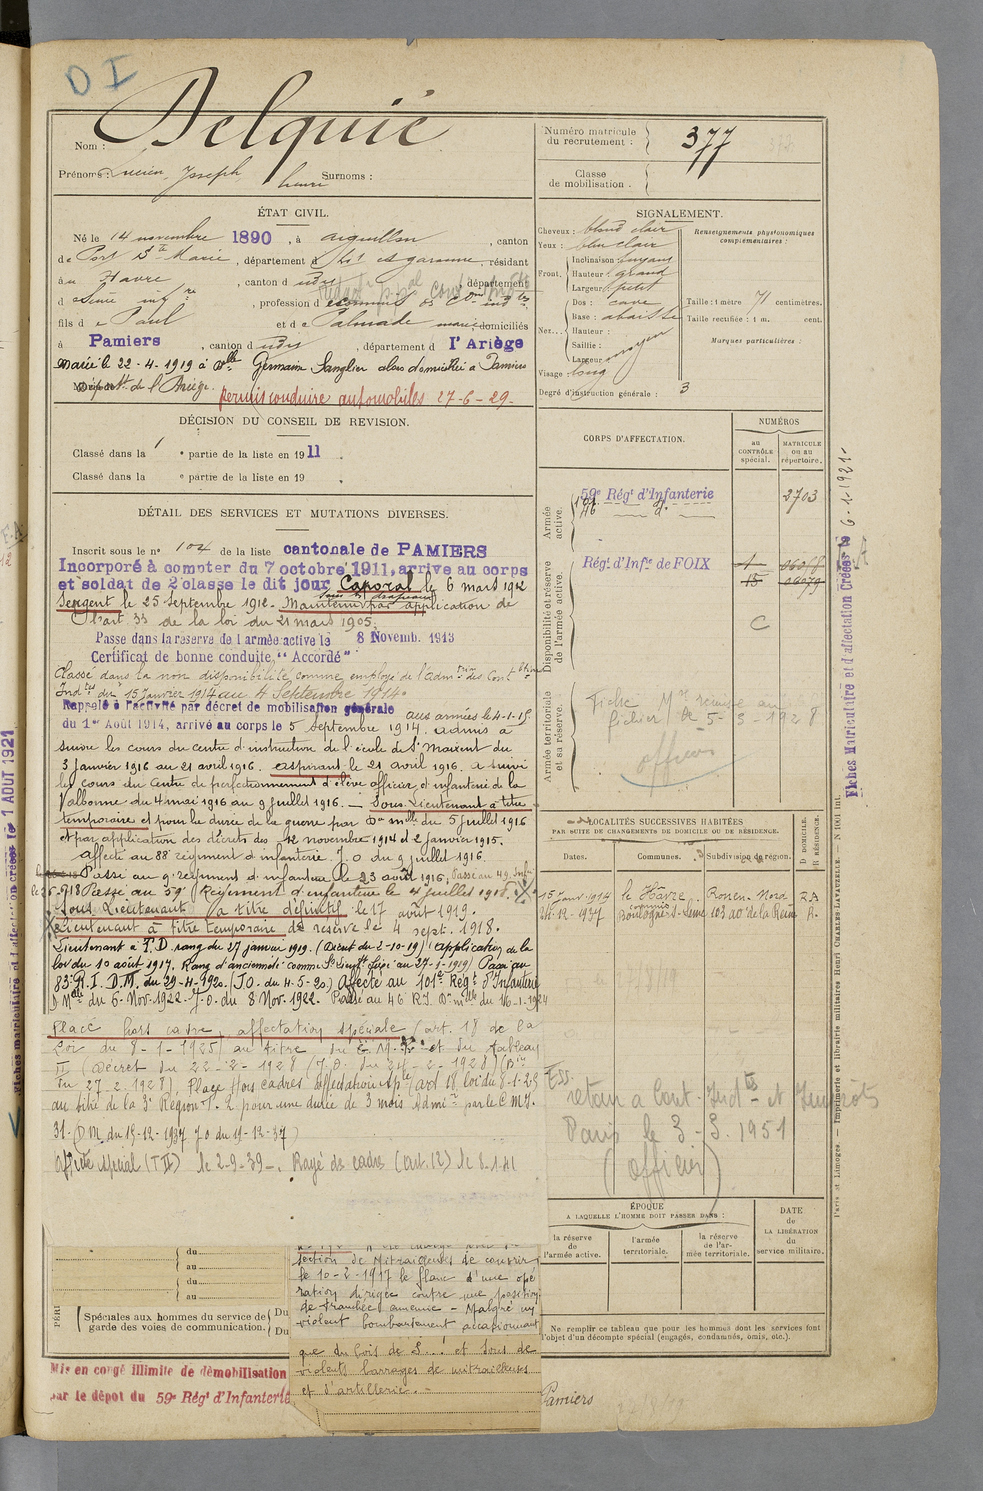 D I
Nom : Delquié
Prénoms : Lucien Joseph henri Surnoms :
Numéro matricule du recrutement : 377
Classe de mobilisation .
ÉTAT CIVIL.
Né le 14 novembre 1890, à Aiguillon, canton
de Port Ste Marie, département d Lot et garonne, résidant
au Havre, canton d udit, département
d Seine infre, profession d
fils d e Paul et d e Palmade marie domiciliés
à Pamiers, canton d udit, département d l'Ariège
Marié le 22-4-1919 à Delle Germain Sanglier alors domiciliée à Pamiers
Départt de l'Ariège.
permis conduire automobiles 27-6-29.
SIGNALEMENT.
Cheveux : blond clair
Yeux : bleu clair
Front. Inclinaison fuyant
Hauteur : grand
Largeur : petit
Nez... Dos : cave
Base : abaissée
Hauteur :
Saillie : moyen
Largeur
Visage long
Degré d'instruction générale : 3
Renseignements physionomiques complémentaires :
Taille : 1 mètre 71 centimètres.
Taille rectifiée : 1 m. cent.
Marques particulières :
DÉCISION DU CONSEIL DE REVISION.
Classé dans la 1 e partie de la liste en 1911.
Classé dans la e partie de la liste en 19 .
DÉTAIL DES SERVICES ET MUTATIONS DIVERSES.
Inscrit sous le no 104 de la liste cantonale de PAMIERS
Incorporé à compter du 7 octobre 1911, arrive au corps
et soldat de 2e classe le dit jour Caporal le 6 mars 1912
Sergent le 25 Septembre 1912. Maintenu sous les drapeaux par application de
l'art. 33 de la loi du 21 mars 1905.
Passe dans la reserve de l'armée active le 8 Novemb. 1913
Certificat de bonne conduite "Accordé"
Classé dans la non disponibilité comme employé de l'admtion des Contbtions
Indtes du 15 janvier 1914 au 4 Septembre 1914.
Rappelé à l'activité par décret de mobilisation générale aux armées le 4-1-15
du 1er Août 1914, arrivé au corps le 5 Septembre 1914. admis à
suivre les cours du Centre d'instruction de l'école de St Maixent du
3 janvier 1916 au 21 avril 1916. aspirant le 21 avril 1916. a suivi
les cours du Centre de perfectionnement d'élève officier d'infanterie de la
Valbonne du 4 mai 1916 au 9 juillet 1916. — Sous-Lieutenant à titre
temporaire et pour la durée de la guerre par Don mlle du 5 juillet 1916
et par application des décrets des 12 novembre 1914 et 2 janvier 1915.
Affecté au 88e régiment d'infanterie. J.O du 9 juillet 1916.
Passe au 9e régiment d'infanterie le 23 août 1916, Passe au 49. Infie
Passé au 59e Régiment d'infanterie le 4 juillet 1918.
Sous Lieutenant à titre définitif le 17 août 1919.
Lieutenant à titre temporaire de réserve le 4 sept. 1918.
Lieutenant à T.D. rang du 27 janvier 1919. (Décret du 2-10-19) application de la
loi du 10 août 1917. Rang d'ancienneté comme St Lieut fixé au 27-1-1919) Passé au
83e R.I. D.M. du 29-4-1920. (JO. du 4-5-20) Affecté au 101e Régt d'Infanterie
D Mlle du 6-Nov-1922. J.O. du 8 Nov. 1922. Passé au 46 R.I. Dn mlle du 16-1-1924
Placé hors cadre, affectation spéciale (art. 18 de la
Loi du 8-1-1925) au titre du et du tableau
II (Décret du 22-2-1928 (J.O. du 24-2-1928)
du 27-2-1928). Placé Hors Cadres Affectation Sple (art 18 loi du 8-1-25
au titre de la 3e Région T. 2 pour une durée de 3 mois Admin par le C.M.I.
31. (D.M. du 15-12-1937 J.O du 19-12-37)
Affecté spécial (T II) le 2-9-39-. Rayé des cadres (art. 12) le 8-1-41
CORPS D'AFFECTATION.
NUMÉROS
au CONTRÔLE spécial.
MATRICULE ou au répertoire.
Armée active.
59e Régt d'Infanterie 2703
101
46 d°
Disponibilité et réserve de l'armée active.
Régt d'Infie de FOIX
C
Armée territoriale et sa réserve.
Fiche Mle remise au
fichier le 5-3-1928
officiers
LOCALITÉS SUCCESSIVES HABITÉES
PAR SUITE DE CHANGEMENTS DE DOMICILE OU DE RÉSIDENCE.
Dates. Communes. Subdivision de région. D DOMICILE. R RÉSIDENCE.
15 Janv 1914 le Hâvre Rouen-Nord R.A
24-12-1937 Boulogne s-Seine 103 av. de la Reine R.
Ess.
retour a Cont. Indtes et Impôts
Paris le 3-5-1951
(officier)
ÉPOQUE
A LAQUELLE L'HOMME DOIT PASSER DANS :
la réserve de l'armée active.
l'armée territoriale.
la réserve de l'armée territoriale.
DATE de LA LIBÉRATION du service militaire.
Ne remplir ce tableau que pour les hommes dont les services font
l'objet d'un décompte spécial (engagés, condamnés, omis, etc.).
du
au
du
au
PÉRI
Spéciales aux hommes du service de garde des voies de communication.
Du
Du
section de Mitrailleuses de couvrir
le 10-2-1917 le flanc d'une opé
ration dirigée contre une position
de tranchée ennemie - Malgré un
violent bombardement accompagnant
que du bois de S... et sous de
violents barrages de mitrailleuses
et d'artillerie.-
Mis en congé illimité de démobilisation
par le dépôt du 59e Régt d'Infanterie
Pamiers
Fiches Matriculaire et d'affectation Créées le 6-1-1921-
Fiches matriculaire et d'affectation créées le 1 AOUT 1921
Paris et Limoges. — Imprimerie et librairie militaires Henri CHARLES-LAVAUZELLE.